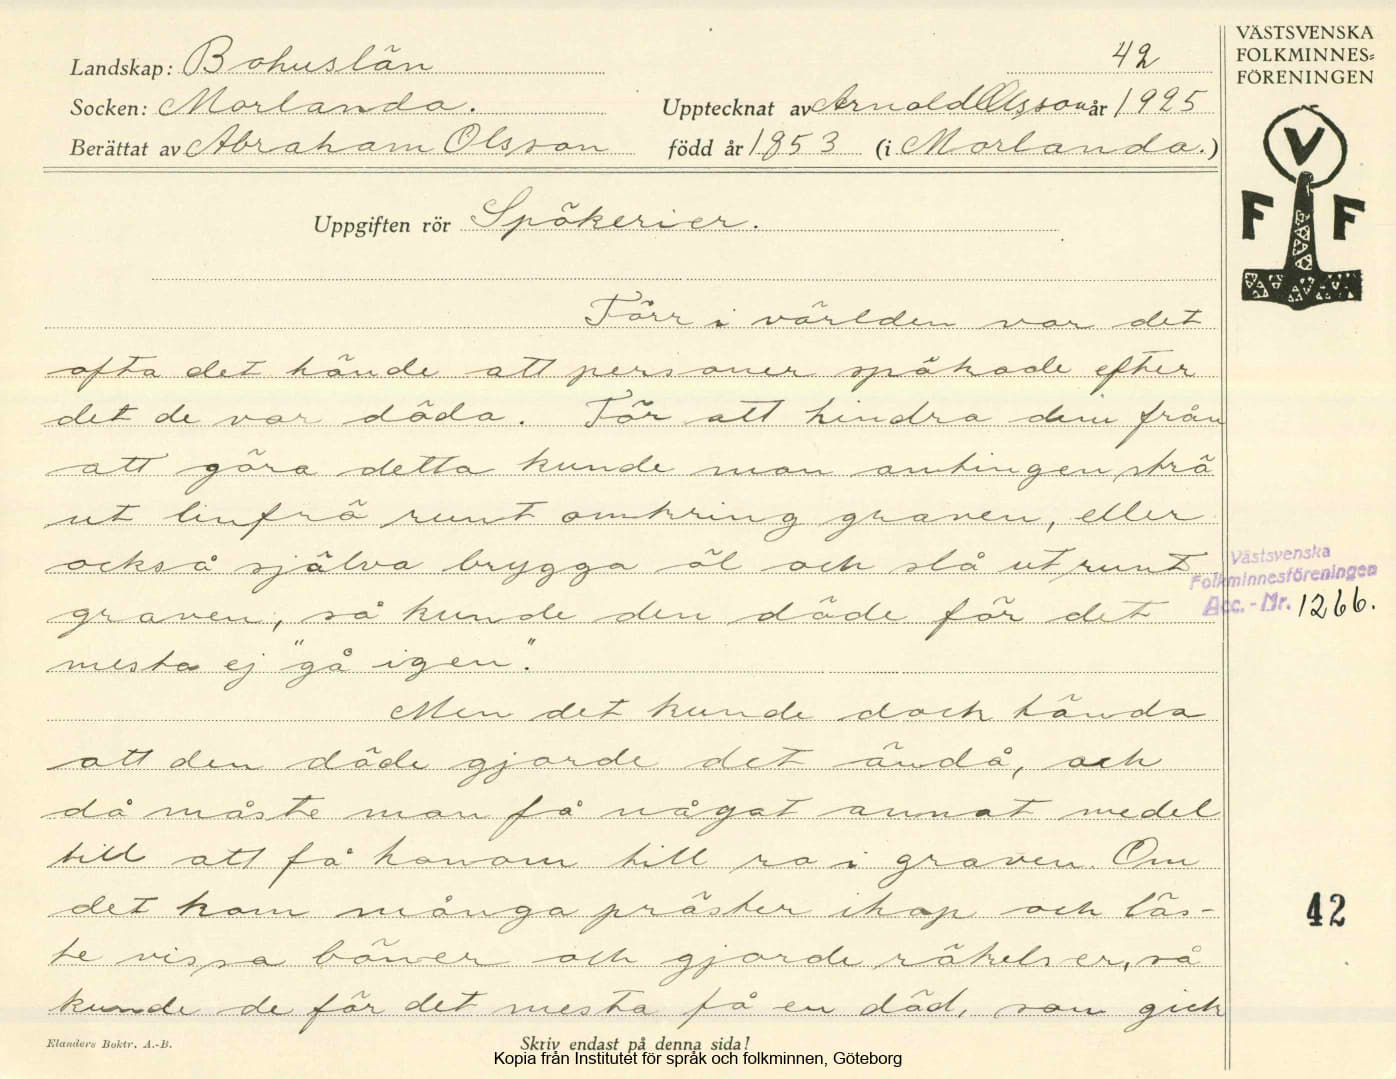 VÄSTSVENSKA
FOLKMINNES=
FÖRENINGEN
Landskap: Bohuslän 42
Socken: Morlanda. Upptecknat av Arnold Olsson år 1925
Berättat av Abraham Olsson född år 1853 (i Morlanda.)
V
F F
Uppgiften rör Spökerier.
Förr i världen var det
ofta det hände att personer spökade efter
det de var döda. För att hindra dem från
att göra detta kunde man antingen strö
ut linfrö runt omkring graven, eller
också själva brygga öl och slå ut runt
graven, så kunde den döde för det
mesta ej "gå igen".
Västsvenska
Folkminnesföreningen
Acc.-Nr. 1266.
Men det kunde dock hända
att den döde gjorde det ändå, och
då måste man få något annat medel
till att få honom till ro i graven. Om
det kom många präster ihop och läs-
te vissa böner och gjorde rökelser, så
kunde de för det mesta få en död, som gick
42
Elanders Boktr. A.-B.
Skriv endast på denna sida!
Kopia från Institutet för språk och folkminnen, Göteborg